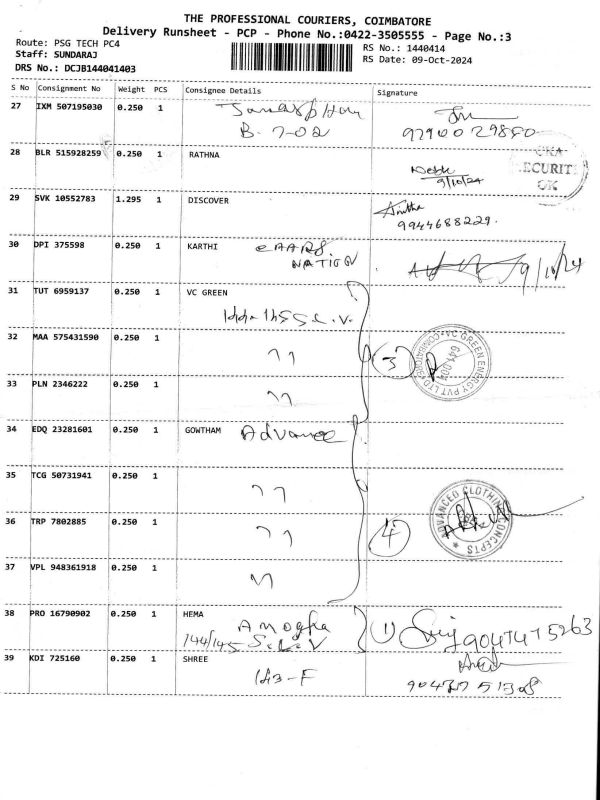 THE PROFESSIONAL COURIERS, COIMBATORE
Delivery Runsheet - PCP - Phone No.:0422-3505555 - Page No.:3
Route: PSG TECH PC4
RS No.: 1440414
Staff: SUNDARAJ
RS Date: 09-Oct-2024
DRS No.: DCJB144041403
S No Consignment No Weight PCS Consignee Details Signature
27 IXM 507195030 0.250 1
B-702
28 BLR 515928259 0.250 1 RATHNA
9/10/24
SECURITY
OK
29 SVK 10552783 1.295 1 DISCOVER
Anitha
9944688229.
30 DPI 375598 0.250 1 KARTHI
NATION
9/10/24
31 TUT 6959137 0.250 1 VC GREEN
32 MAA 575431590 0.250 1 " 3
VC GREEN ENERGY PVT LTD
641 004
33 PLN 2346222 0.250 1 "
34 EDQ 23281601 0.250 1 GOWTHAM Advance
35 TCG 50731941 0.250 1 "
ADVANCED CLOTHING CONCEPTS
36 TRP 7802885 0.250 1 " 4
37 VPL 948361918 0.250 1 "
38 PRO 16790902 0.250 1 HEMA Amogha 1
144/145 S.L.V
39 KDI 725160 0.250 1 SHREE
143-F